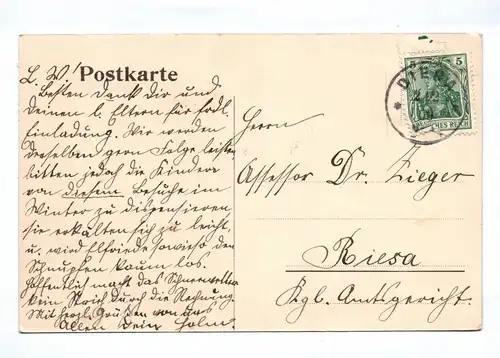 L. W.!
Postkarte
Besten Dank Dir und
Deinen l. Eltern für frdl.
Einladung. Wir werden
derselben gern Folge leisten,
bitten jedoch die Kinder
von diesem Besuche im
Winter zu dispensieren
sie erkälten sich zu leicht,
u. wird Elfriede sowieso den
Schnupfen kaum los.
Hoffentlich macht das Schneewetter
kein Strich durch die Rechnung.
Mit herzl. Grüßen von uns
Allen Dein
5
DEUTSCHES REICH
Herrn
Assessor Dr. Zieger
Riesa
Kgl. Amtsgericht.